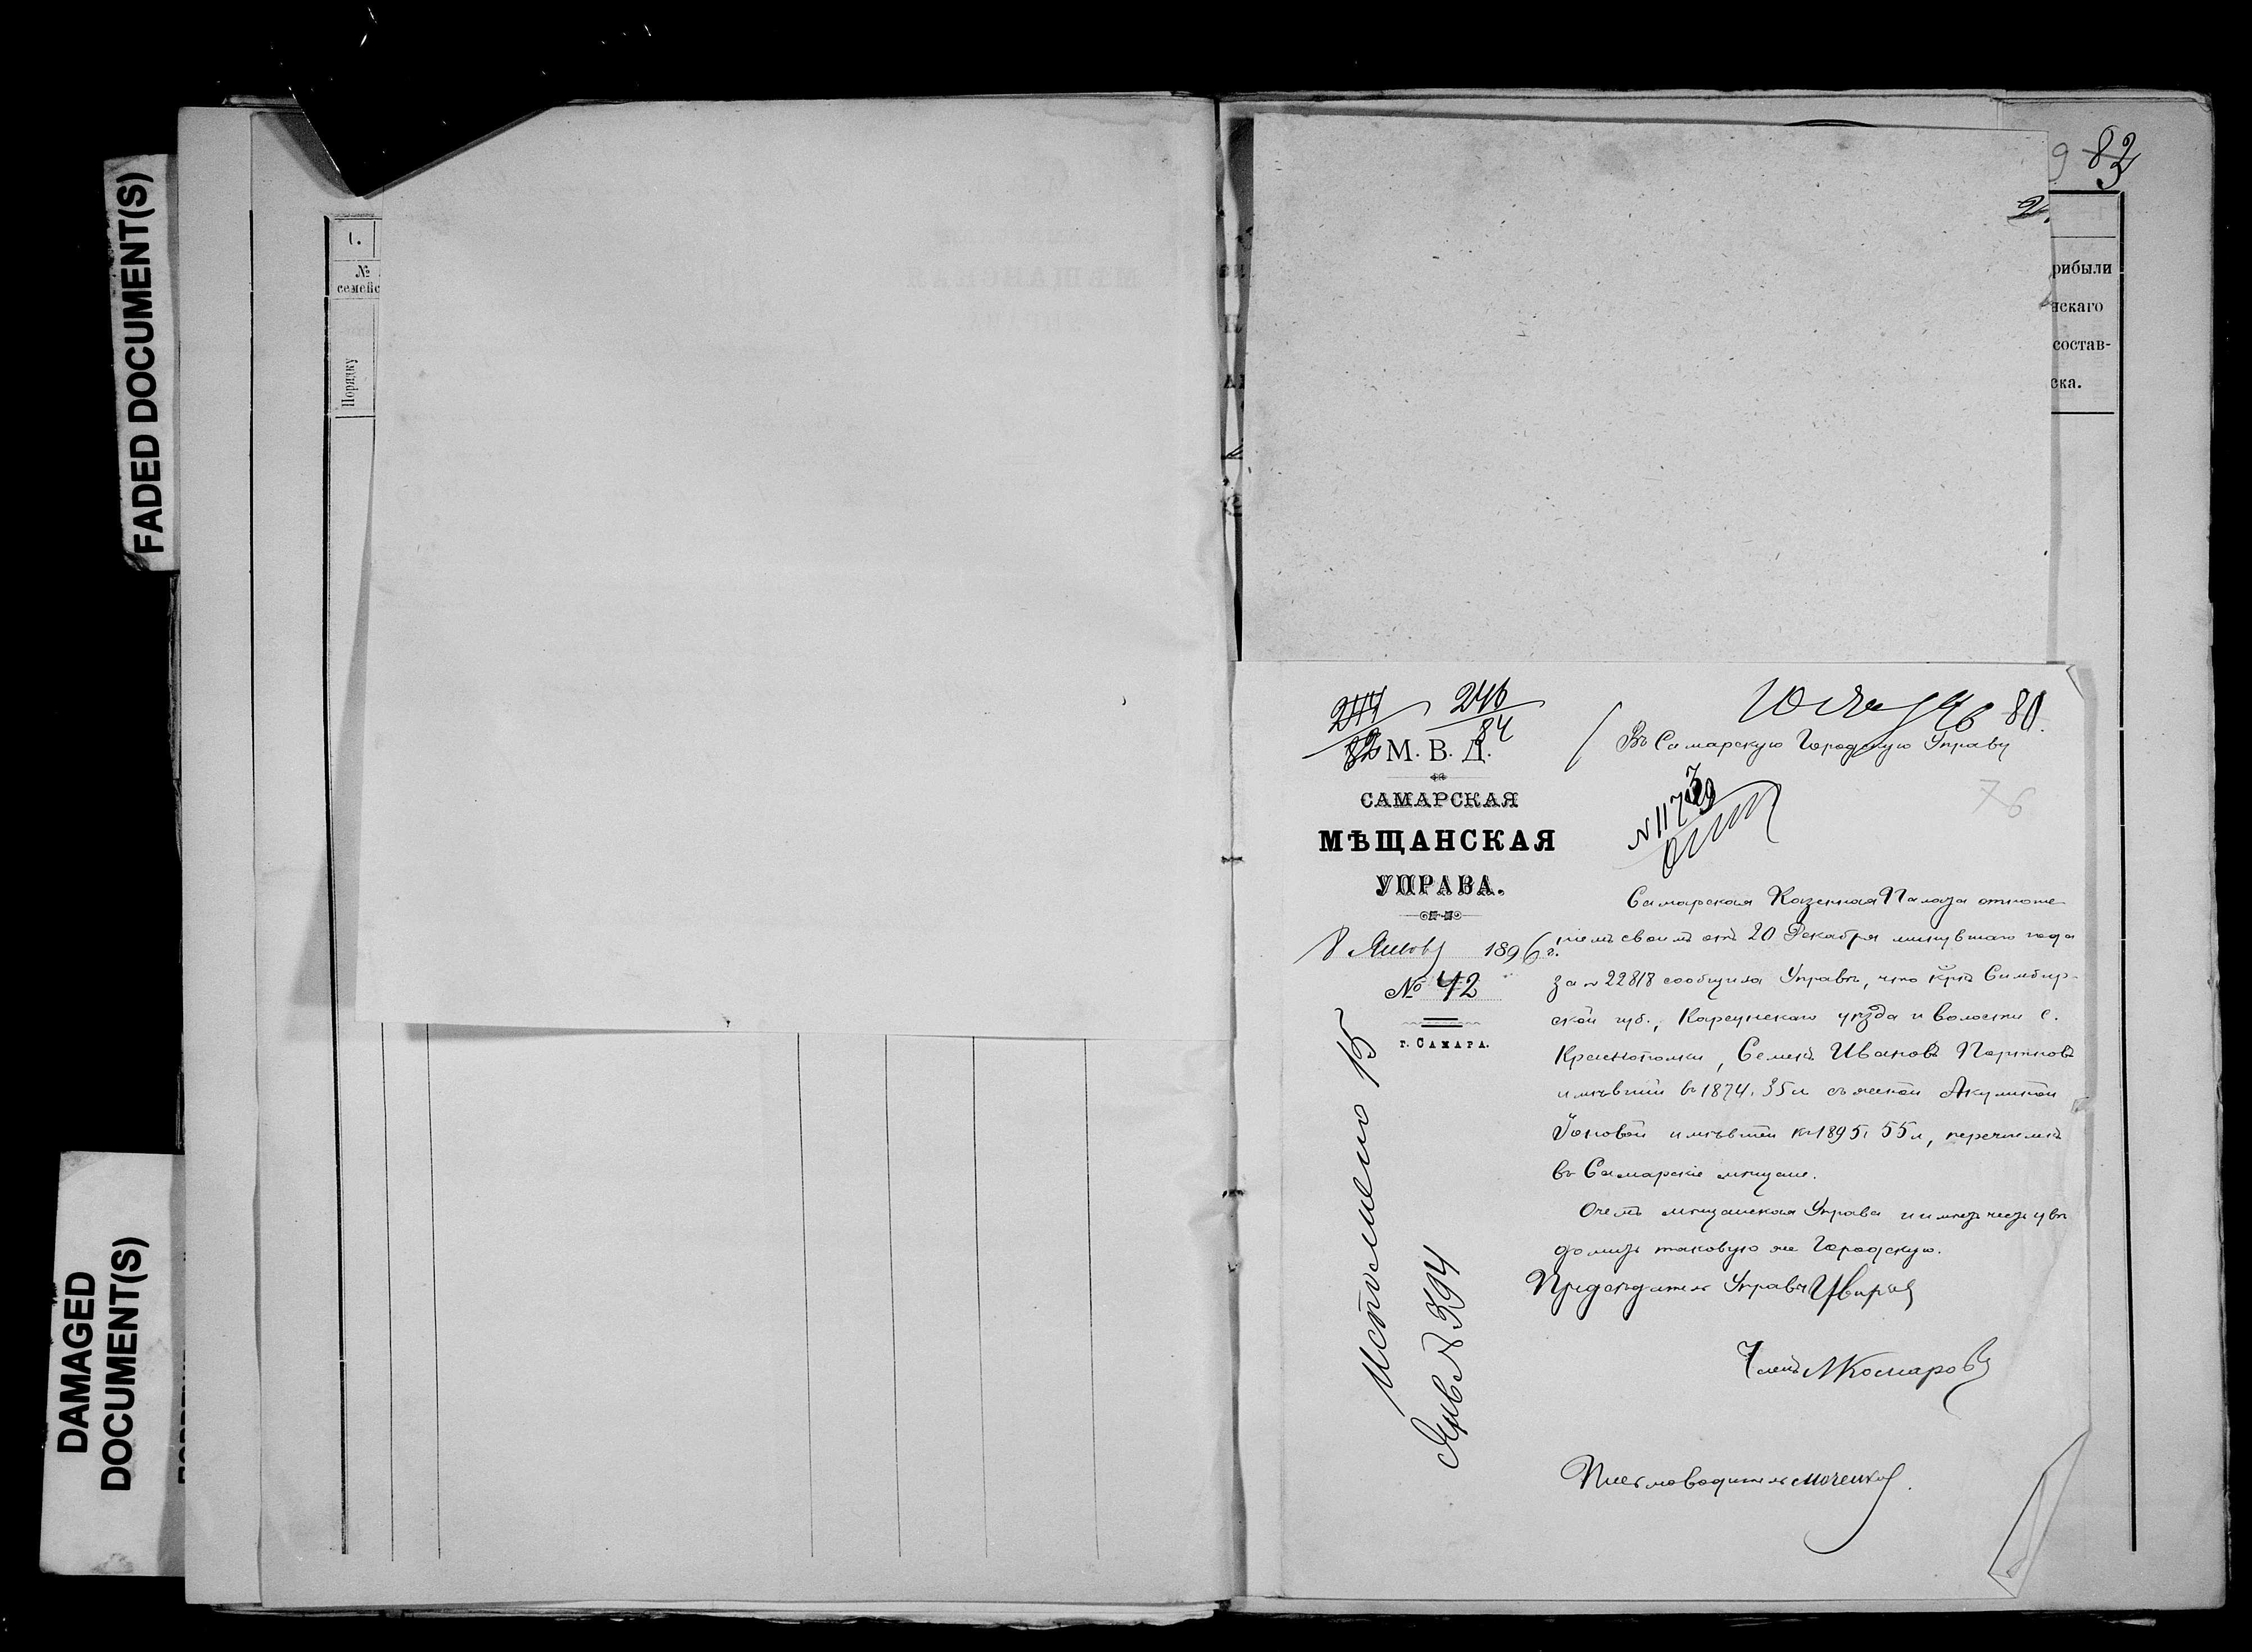 FADED DOCUMENT(S)
DAMAGED
DOCUMENT(S)
1.
№
семейс
Порядку
82
рибыли
нскаго
состав-
ска.
244
82
246
84
80.
М. В. Д.
САМАРСКАЯ
МѢЩАНСКАЯ
УПРАВА.
8 Январ 1896 г.
№ 42
г. САМАРА.
Въ Самарскую Городскую Управу
76
Самарская Казенная Палата отноше-
ніемъ своимъ отъ 20 Декабря минувшаго года
за № 22818 сообщила Управѣ, что кр-нъ Симбир-
ской губ., Карсунскаго уѣзда и волости с.
Краснополки, Семенъ Ивановъ
имѣвшій въ 1874. 35 л. съ женой Акулиной
Іоновой имѣвшей въ 1895. 55 л., перечисленъ
въ Самарскіе мѣщане.
О чемъ мѣщанская Управа и имѣетъ честь увѣ-
домить таковую же Городскую.
Предсѣдатель Управы
Членъ Комаровъ
Письмоводитель
Исполнено 15
Янв № 394